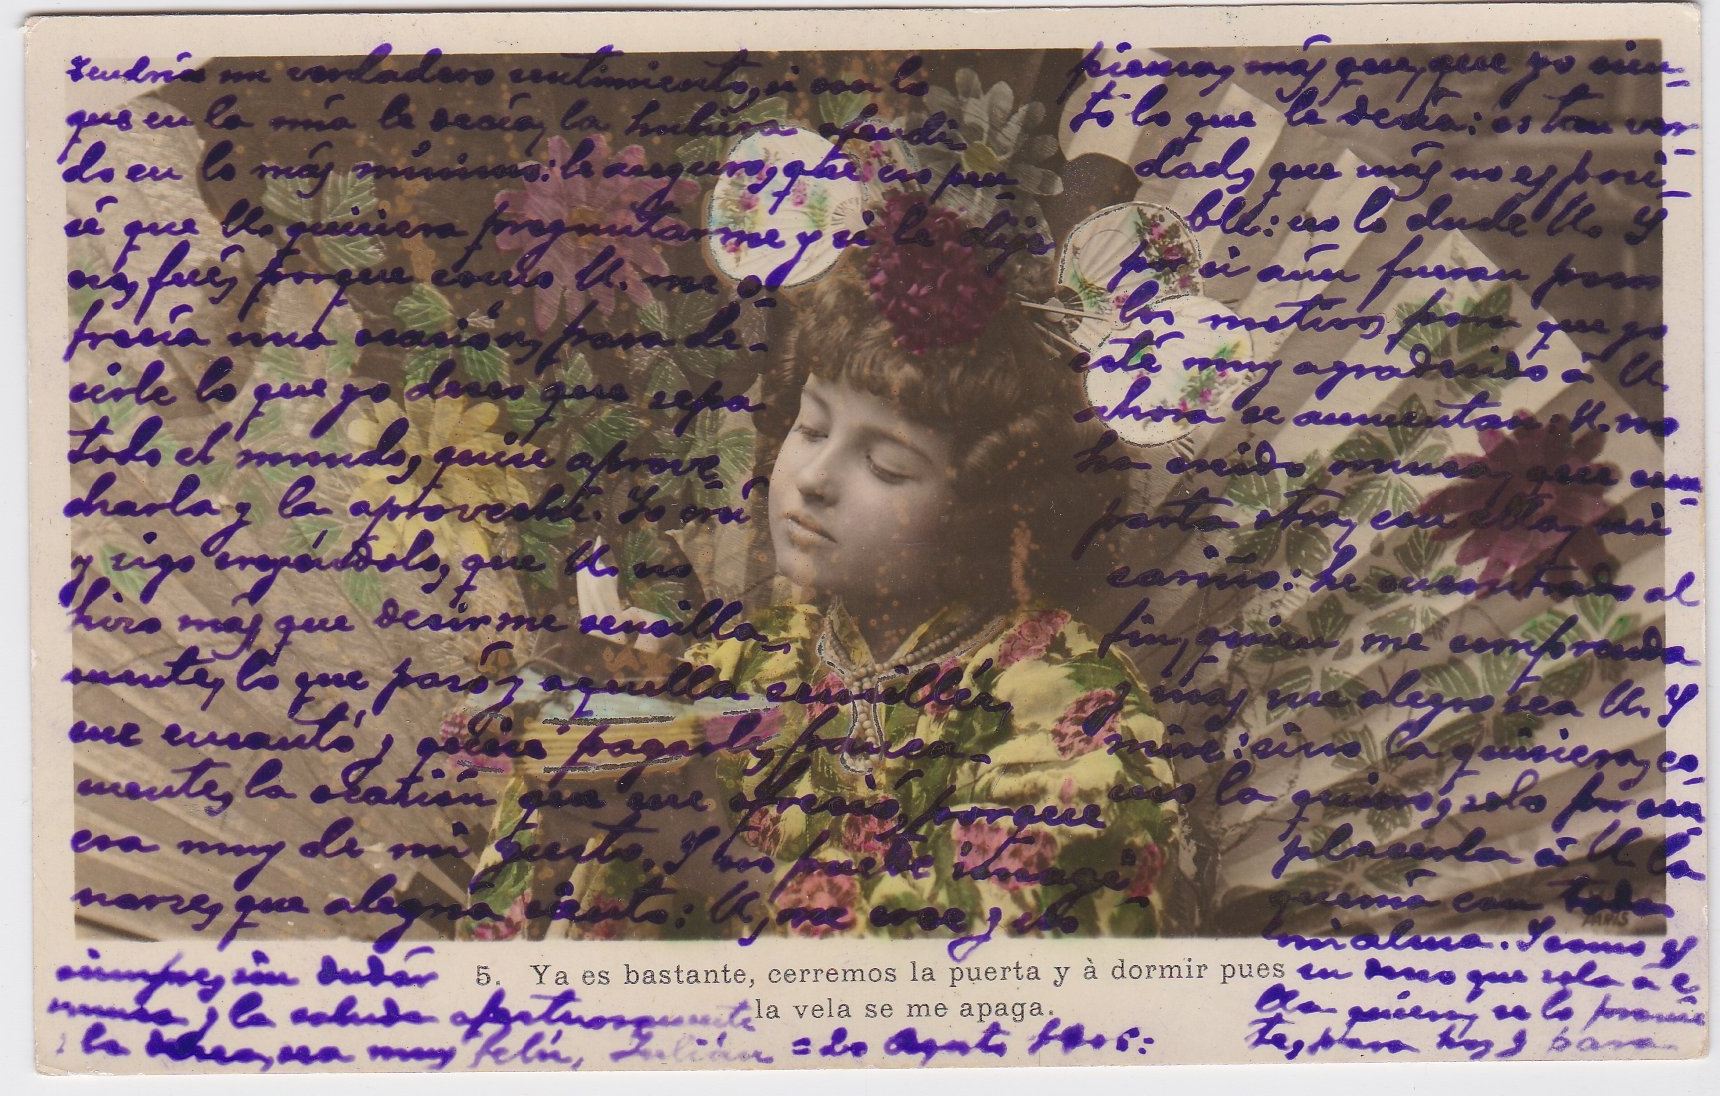 tendría un verdadero sentimiento, si con lo
que en la mía le decía, la hubiera ofendi-
do en lo más mínimo: le aseguro, que no pen-
sé que U. quisiera preguntarme y si le dije
eso, fué, porque como U. me o-
frecía una ocasión, para de-
cirle lo que yo deseo que sepa
todo el mundo, quise aprove-
charla y la aproveché. Yo creí
y sigo creyéndolo, que U. no
hizo más que decirme sencilla-
mente, lo que pasó y aquella sencilléz,
me encantó y quise pagarle, franca-
mente, la ocasión que me ofreció, porque
era muy de mi gusto. Y no puede imagi-
narse, que alegría siento: U, me cree y no
piensa, más que, que yo sien-
to lo que le decía: es tan ver-
dad, que más no es posi-
ble: no lo dude U. Y
por si aún fueran pocos
los motivos para que yo
esté muy agradecido á U.
ahora se aumentan: U. no
ha creido nunca, que com-
parta otra, con ella, mi
cariño: he encontrado al
fin, quien me comprenda
y más me alegro sea U. Y
mire: sino la quisiera, co
mo la quiero, solo por com
placerla á U. la
querría con toda
mi alma. Y como y
su deseo que sola á e
lla quiera, se lo prome
te, para hoy y para
siempre, sin dudár
nunca y la saluda afectuosamente
y la desea, sea muy felíz, Julián = 20 Agosto 1906:
5. Ya es bastante, cerremos la puerta y à dormir pues
la vela se me apaga.
PARIS